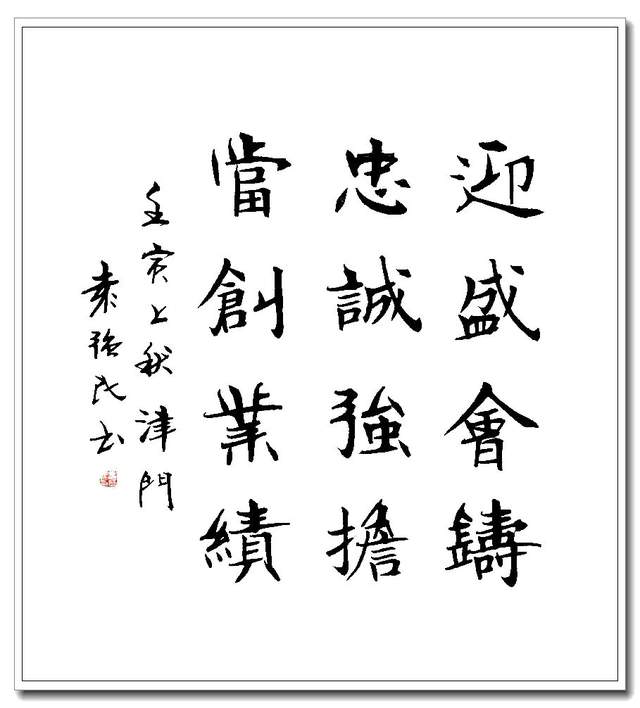 迎盛會鑄
忠誠強擔
當創業績
壬寅上秋津門
袁强民书